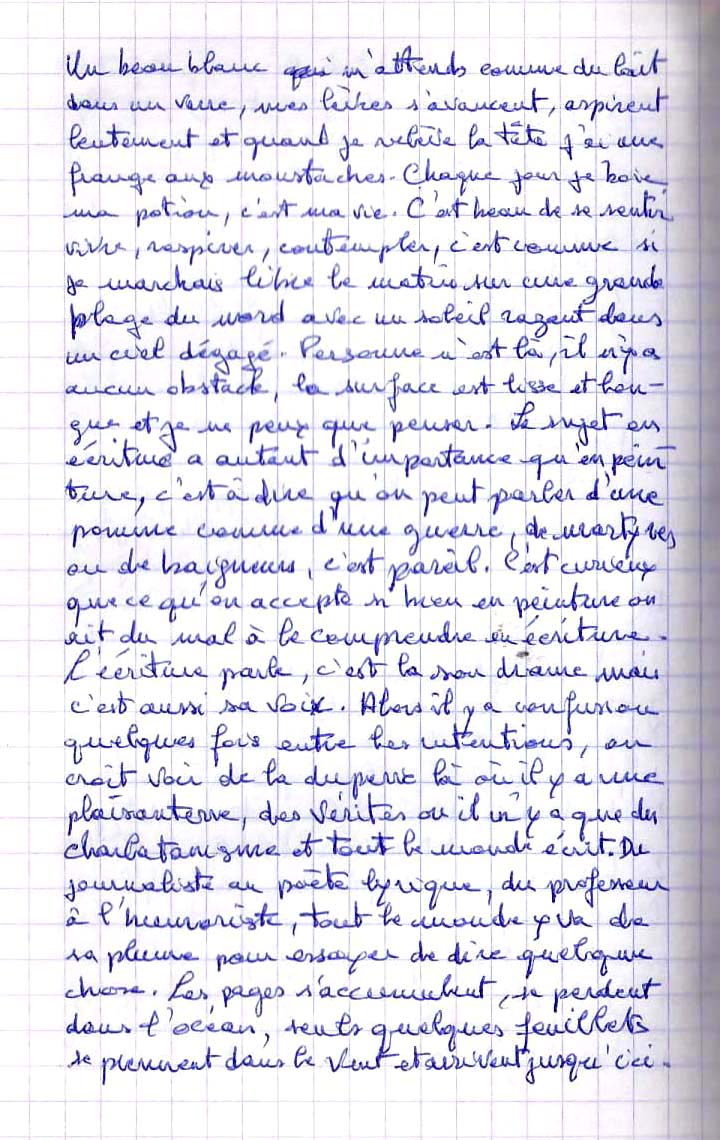 Un beau blanc qui m'attends comme du lait
dans un verre, mes lèvres s'avancent, aspirent
lentement et quand je relève la tête j'ai une
frange aux moustaches. Chaque jour je bois
ma potion, c'est ma vie. C'est beau de se sentir
vivre, respirer, contempler, c'est comme si
je marchais libre le matin sur une grande
plage du nord avec un soleil rasant dans
un ciel dégagé. Personne n'est là, il n'y a
aucun obstacle, la surface est lisse et lon-
gue et je ne peux que penser. Le sujet en
écriture a autant d'importance qu'en pein
ture, c'est à dire qu'on peut parler d'une
pomme comme d'une guerre, de martyres
ou de baigneurs, c'est pareil. C'est curieux
que ce qu'on accepte si bien en peinture on
ait du mal à le comprendre en écriture.
L'écriture parle, c'est la son drame mais
c'est aussi sa voix. Alors il y a confusion
quelques fois entre les intentions, on
croit voir de la duperie là où il y a une
plaisanterie, des vérités ou il n'y a que du
charlatanisme et tout le monde écrit. Du
journaliste au poète lyrique, du professeur
à l'humoriste, tout le monde y va de
sa plume pour essayer de dire quelque
chose. Les pages s'accumulent, se perdent
dans l'océan, seuls quelques feuillets
se prennent dans le vent et arrivent jusqu'ici.